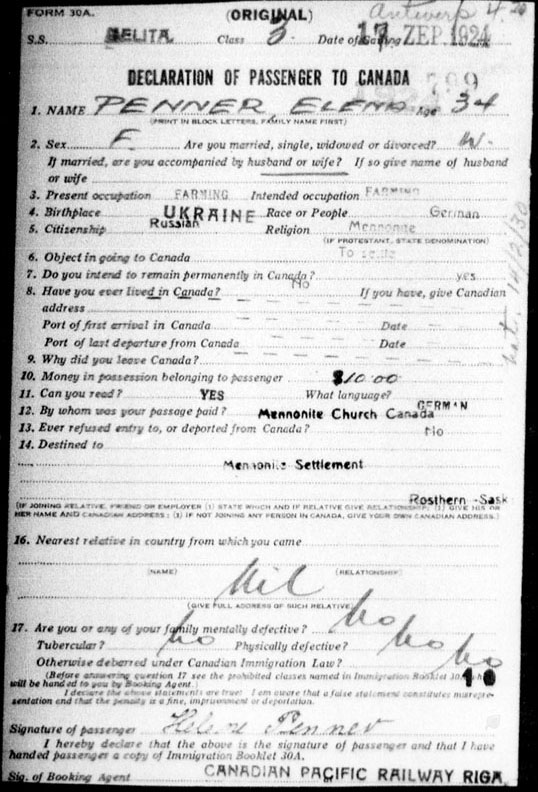 FORM 30A. (ORIGINAL) Antwerp 4.
S.S. MELITA. Class 3 Date of Sailing 17 ZEP. 1924
DECLARATION OF PASSENGER TO CANADA
1. NAME PENNER ELENA Age 34
(PRINT IN BLOCK LETTERS, FAMILY NAME FIRST)
2. Sex F. Are you married, single, widowed or divorced?
If married, are you accompanied by husband or wife? If so give name of husband
or wife
3. Present occupation FARMING Intended occupation FARMING
4. Birthplace UKRAINE Race or People German
5. Citizenship Russian Religion Mennonite
(IF PROTESTANT, STATE DENOMINATION)
6. Object in going to Canada To settle
7. Do you intend to remain permanently in Canada? yes
8. Have you ever lived in Canada? No If you have, give Canadian
address
Port of first arrival in Canada Date
Port of last departure from Canada Date
9. Why did you leave Canada?
10. Money in possession belonging to passenger $10.00
11. Can you read? YES What language? GERMAN
12. By whom was your passage paid? Mennonite Church Canada
13. Ever refused entry to, or deported from Canada? No
14. Destined to
Mennonite Settlement
Rosthern - Sask
(IF JOINING RELATIVE, FRIEND OR EMPLOYER (1) STATE WHICH AND IF RELATIVE GIVE RELATIONSHIP; (2) GIVE HIS OR
HER NAME AND CANADIAN ADDRESS; (3) IF NOT JOINING ANY PERSON IN CANADA, GIVE YOUR OWN CANADIAN ADDRESS.)
16. Nearest relative in country from which you came
(NAME) (RELATIONSHIP)
Nil
(GIVE FULL ADDRESS OF SUCH RELATIVE)
17. Are you or any of your family mentally defective? No
Tubercular? No Physically defective? No
Otherwise debarred under Canadian Immigration Law? No
(Before answering question 17 see the prohibited classes named in Immigration Booklet 30A
will be handed to you by Booking Agent.) 10
I declare the above statements are true: I am aware that a false statement constitutes misrepre-
sentation and that the penalty is a fine, imprisonment or deportation.
Signature of passenger Helene Penner
I hereby declare that the above is the signature of passenger and that I have
handed passenger a copy of Immigration Booklet 30A.
Sig. of Booking Agent CANADIAN PACIFIC RAILWAY RIGA.